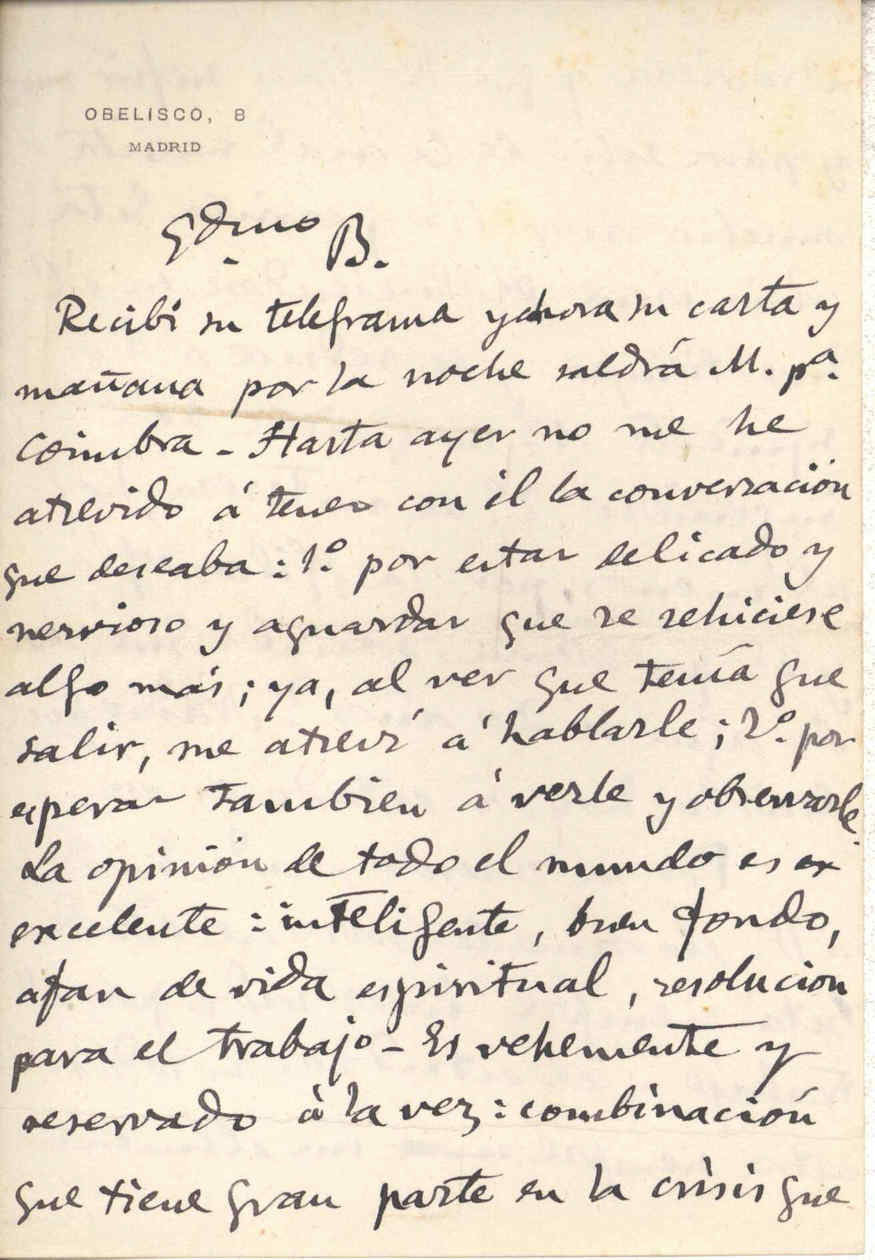 OBELISCO, 8
MADRID
Qdmo B.
Recibí su telegrama y ahora su carta y
mañana por la noche saldrá M. pª.
Coimbra - Hasta ayer no me he
atrevido á tener con él la conversación
que deseaba: 1º. por estar delicado y
nervioso y aguardar que se rehiciese
algo más; ya, al ver que tenía que
salir, me atreví á hablarle; 2º. por
esperar tambien á verle y observarle.
La opinión de todo el mundo es ex
excelente: inteligente, buen fondo,
afan de vida espiritual, resolucion
para el trabajo - Es vehemente y
reservado á la vez: combinación
que tiene gran parte en la crisis que